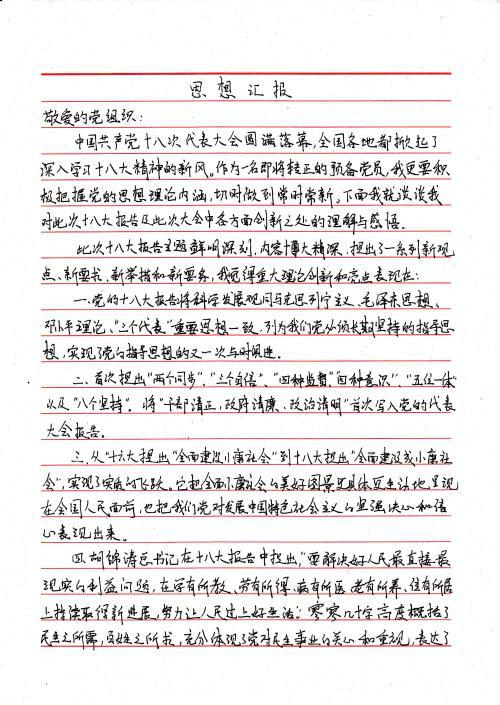 思想汇报
敬爱的党组织：
中国共产党十八次代表大会圆满落幕，全国各地都掀起了
深入学习十八大精神的新风。作为一名即将转正的预备党员，我更要积
极把握党的思想理论内涵，切时做到常时常新。下面我就谈谈我
对此次十八大报告及此次大会中各方面创新之处的理解与感悟。
此次十八大报告主题鲜明深刻，内容博大精深，提出了一系列新观
点、新要求、新举措和新要务，我觉得重大理论创新和亮点表现在：
一、党的十八大报告将科学发展观同马克思列宁主义、毛泽东思想、
邓小平理论、"三个代表"重要思想一致，列为我们党必须长期坚持的指导思
想，实现了党的指导思想的又一次与时俱进。
二、首次提出"两个同步"、"三个自信"、"四种监督"、"四种意识"、"五位一体"
以及"八个坚持"。将"干部清正，政府清廉、政治清明"首次写入党的代表
大会报告。
三、从"十六大提出"全面建设小康社会"到十八大提出"全面建成小康社
会"，实现了实质的飞跃，它把全面小康社会的美好图景更具体更生动地呈现
在全国人民面前，也把我们党对发展中国特色社会主义的坚强决心和信
心表现出来。
四、胡锦涛总书记在十八大报告中提出，"要解决好人民最直接最
现实的利益问题，在学有所教、劳有所得、病有所医、老有所养、住有所居
上持续取得新进展，努力让人民过上好生活"。零零几十字高度概括了
民生之所需，百姓之所求，充分体现了党对民生事业的关心和重视，表达了